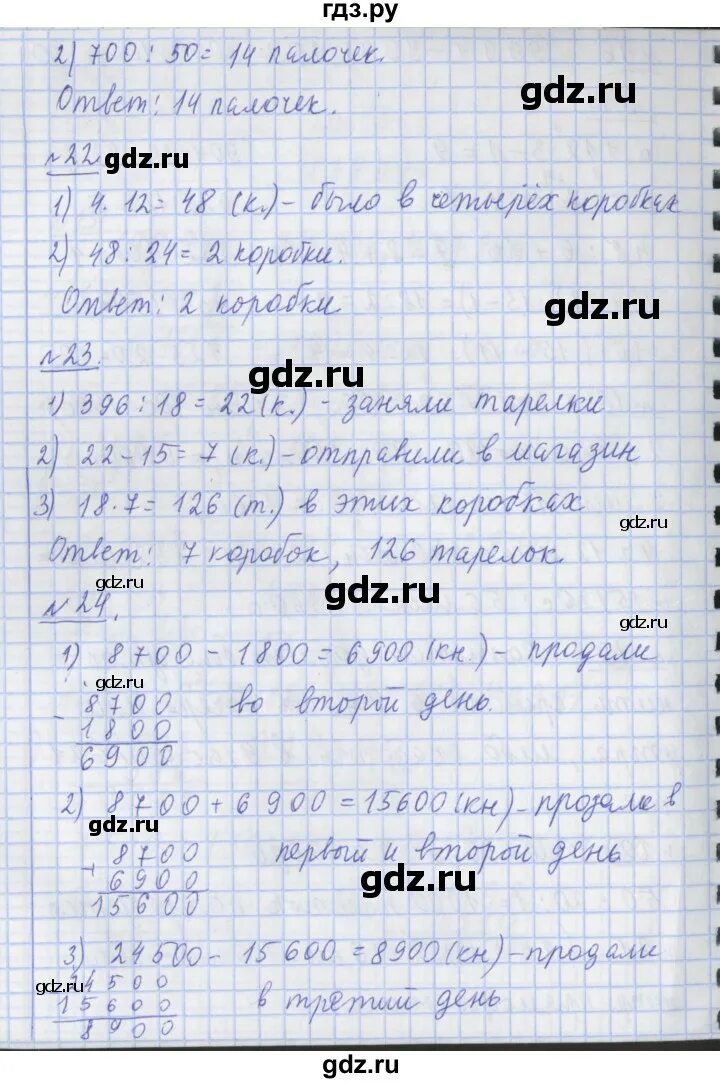 гдз.ру
2) 700 : 50 = 14 палочек.
Ответ: 14 палочек.
gdz.ru
№22.
gdz.ru
1) 4 · 12 = 48 (к.) - было в четырёх коробках
2) 48 : 24 = 2 коробки.
Ответ: 2 коробки
gdz.ru
№23.
gdz.ru
1) 396 : 18 = 22 (к.) - заняли тарелки
2) 22 - 15 = 7 (к.) - отправили в магазин
3) 18 · 7 = 126 (т.) в этих коробках
gdz.ru
Ответ: 7 коробок, 126 тарелок.
gdz.ru
gdz.ru
№24.
gdz.ru
1) 8700 - 1800 = 6900 (кн.) - продали
gdz.ru
- 8700 во второй день.
1800
6900
2) 8700 + 6900 = 15600 (кн) - продали в
gdz.ru
+ 8700 первый и второй день
6900
gdz.ru
15600
3) 24500 - 15600 = 8900 (кн) - продали
gdz.ru
gdz.ru
24500
15600 в третий день
8900
gdz.ru